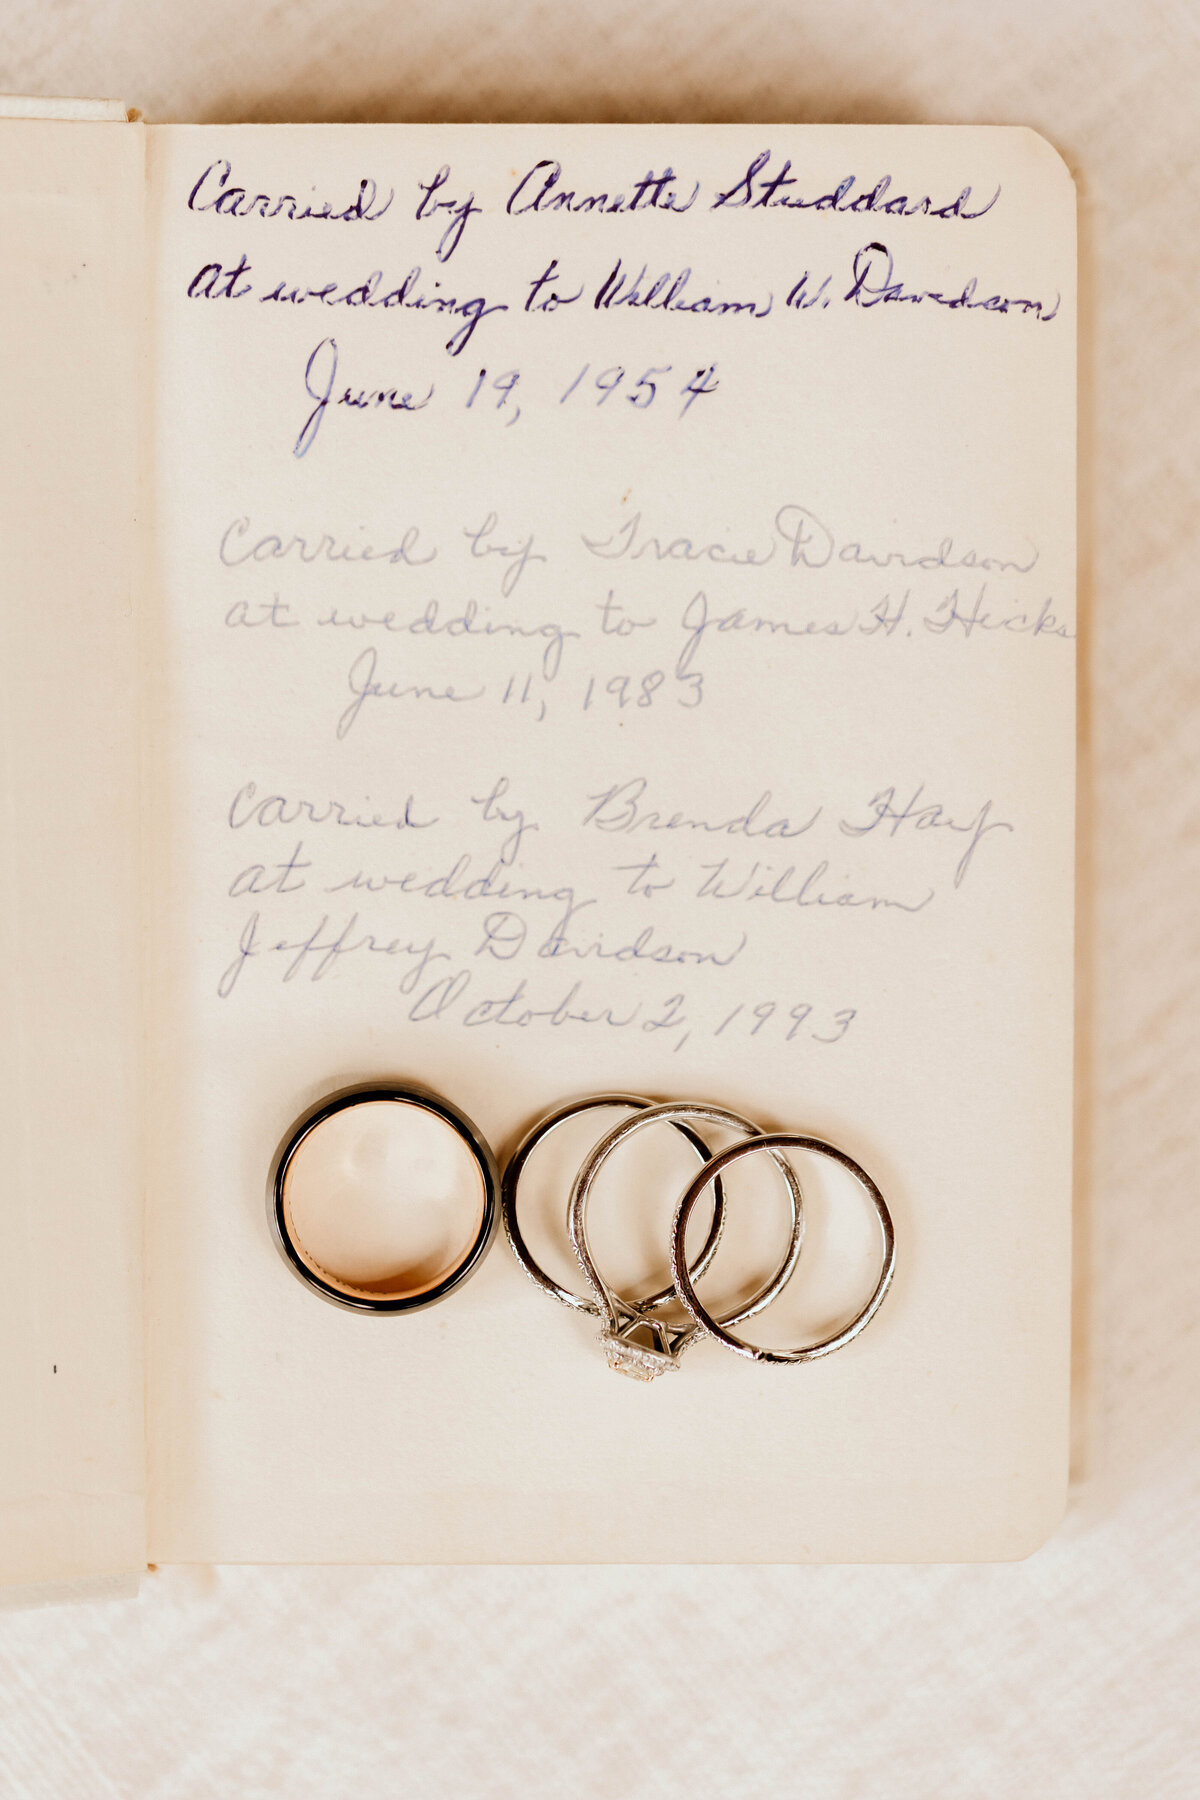 Carried by Annette Studdard
at wedding to William W. Davidson
June 19, 1954
Carried by Tracie Davidson
at wedding to James H. Hicks
June 11, 1983
Carried by Brenda Hay
at wedding to William
Jeffrey Davidson
October 2, 1993